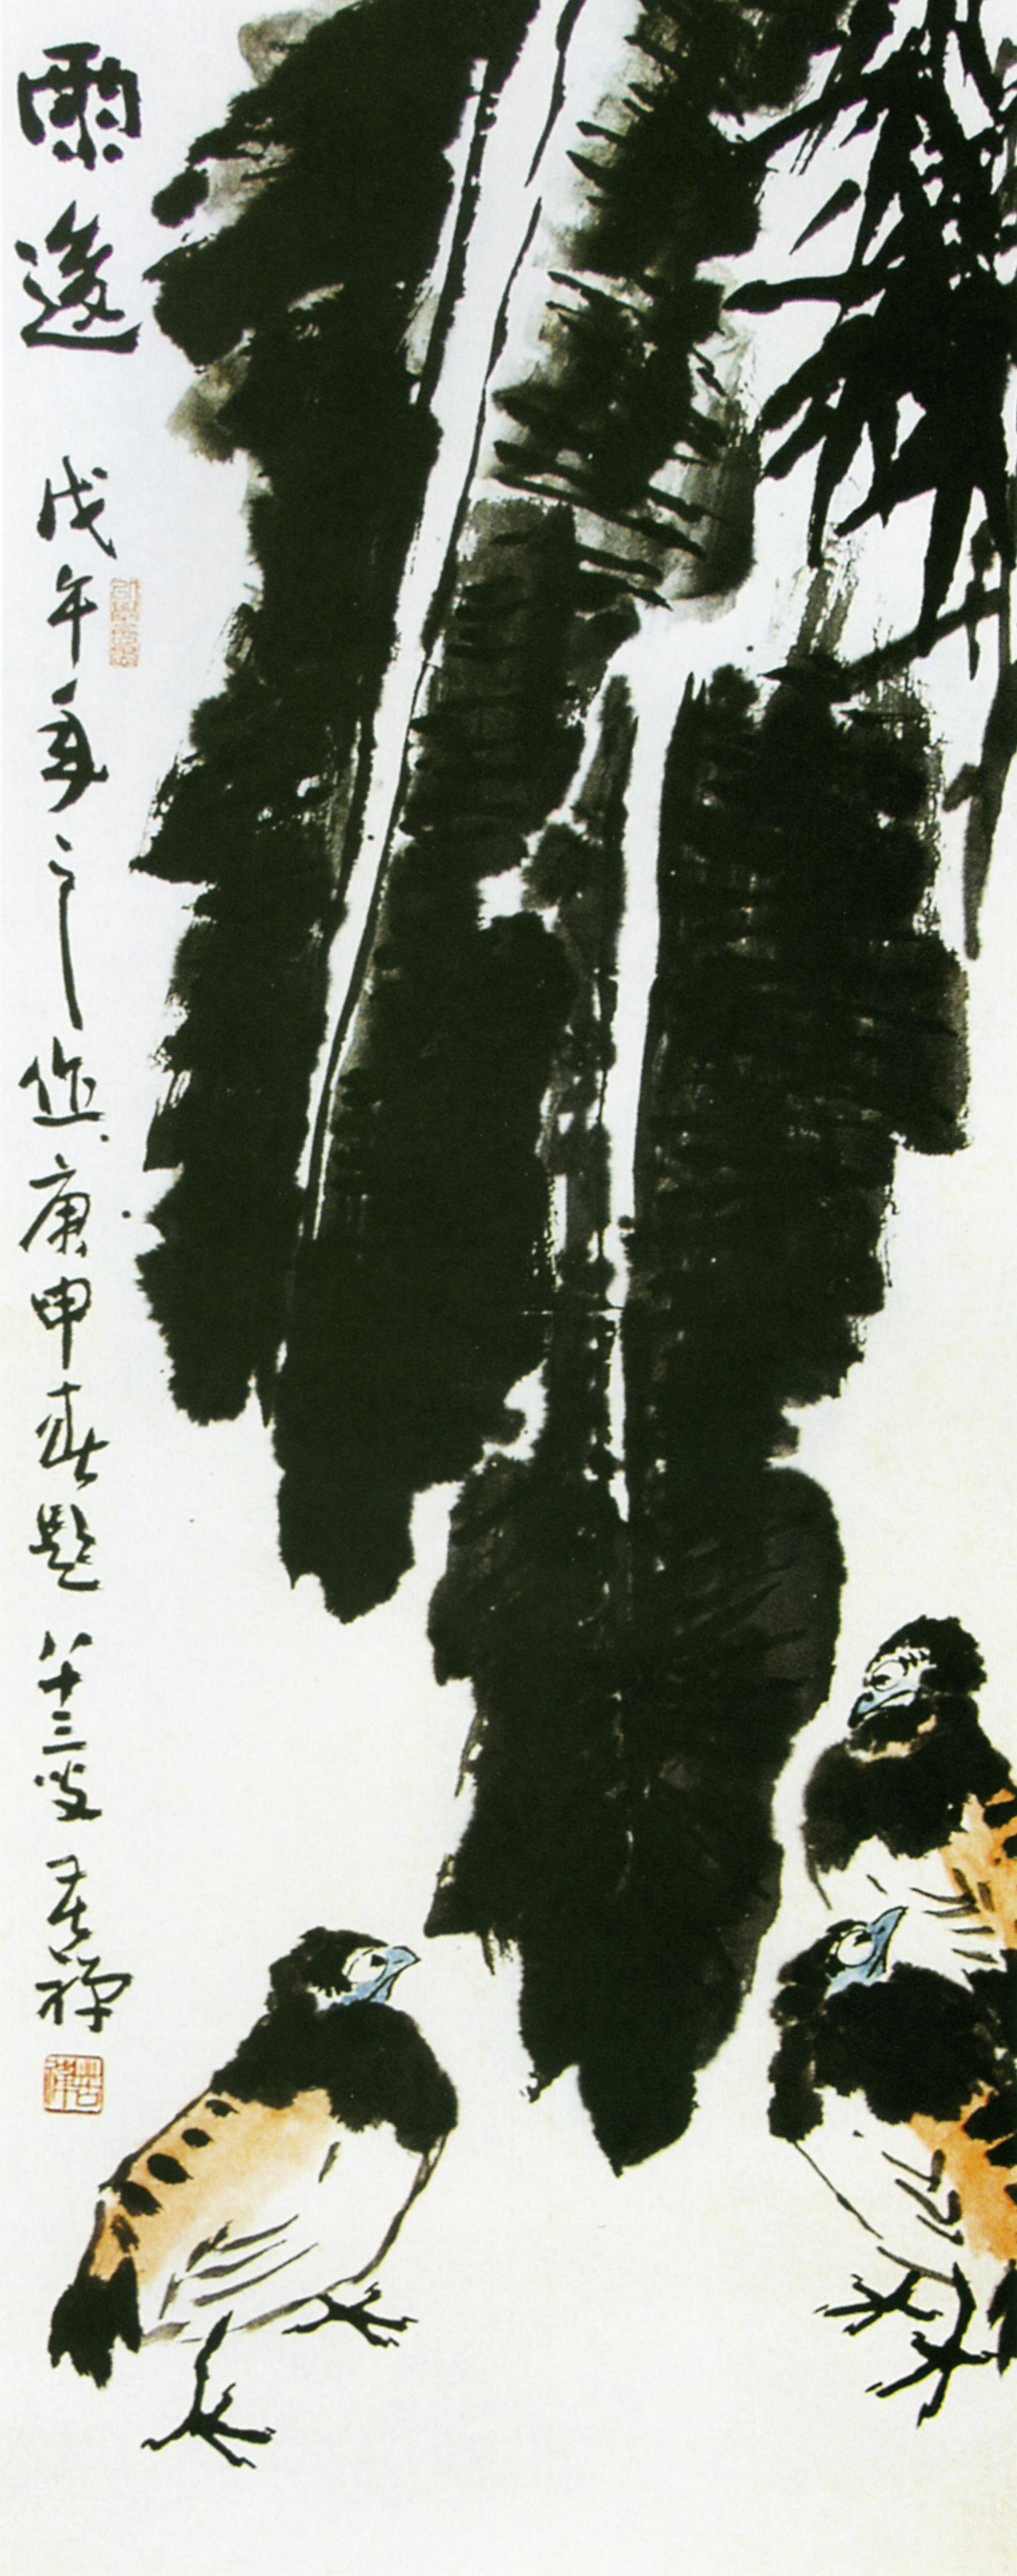 雨後 戊午年之作 庚申春題 八十三叟 苦禪